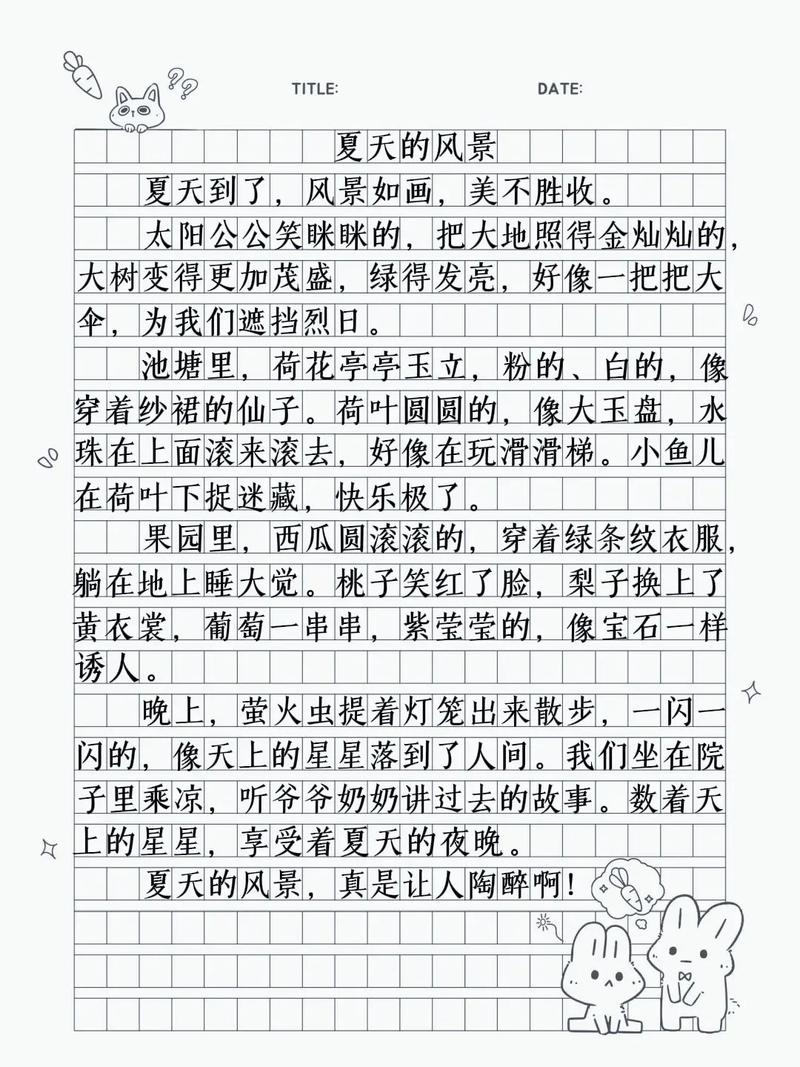 TITLE: DATE:
夏天的风景
夏天到了，风景如画，美不胜收。
太阳公公笑眯眯的，把大地照得金灿灿的，
大树变得更加茂盛，绿得发亮，好像一把把大
伞，为我们遮挡烈日。
池塘里，荷花亭亭玉立，粉的、白的，像
穿着纱裙的仙子。荷叶圆圆的，像大玉盘，水
珠在上面滚来滚去，好像在玩滑滑梯。小鱼儿
在荷叶下捉迷藏，快乐极了。
果园里，西瓜圆滚滚的，穿着绿条纹衣服，
躺在地上睡大觉。桃子笑红了脸，梨子换上了
黄衣裳，葡萄一串串，紫莹莹的，像宝石一样
诱人。
晚上，萤火虫提着灯笼出来散步，一闪一
闪的，像天上的星星落到了人间。我们坐在院
子里乘凉，听爷爷奶奶讲过去的故事。数着天
上的星星，享受着夏天的夜晚。
夏天的风景，真是让人陶醉啊！